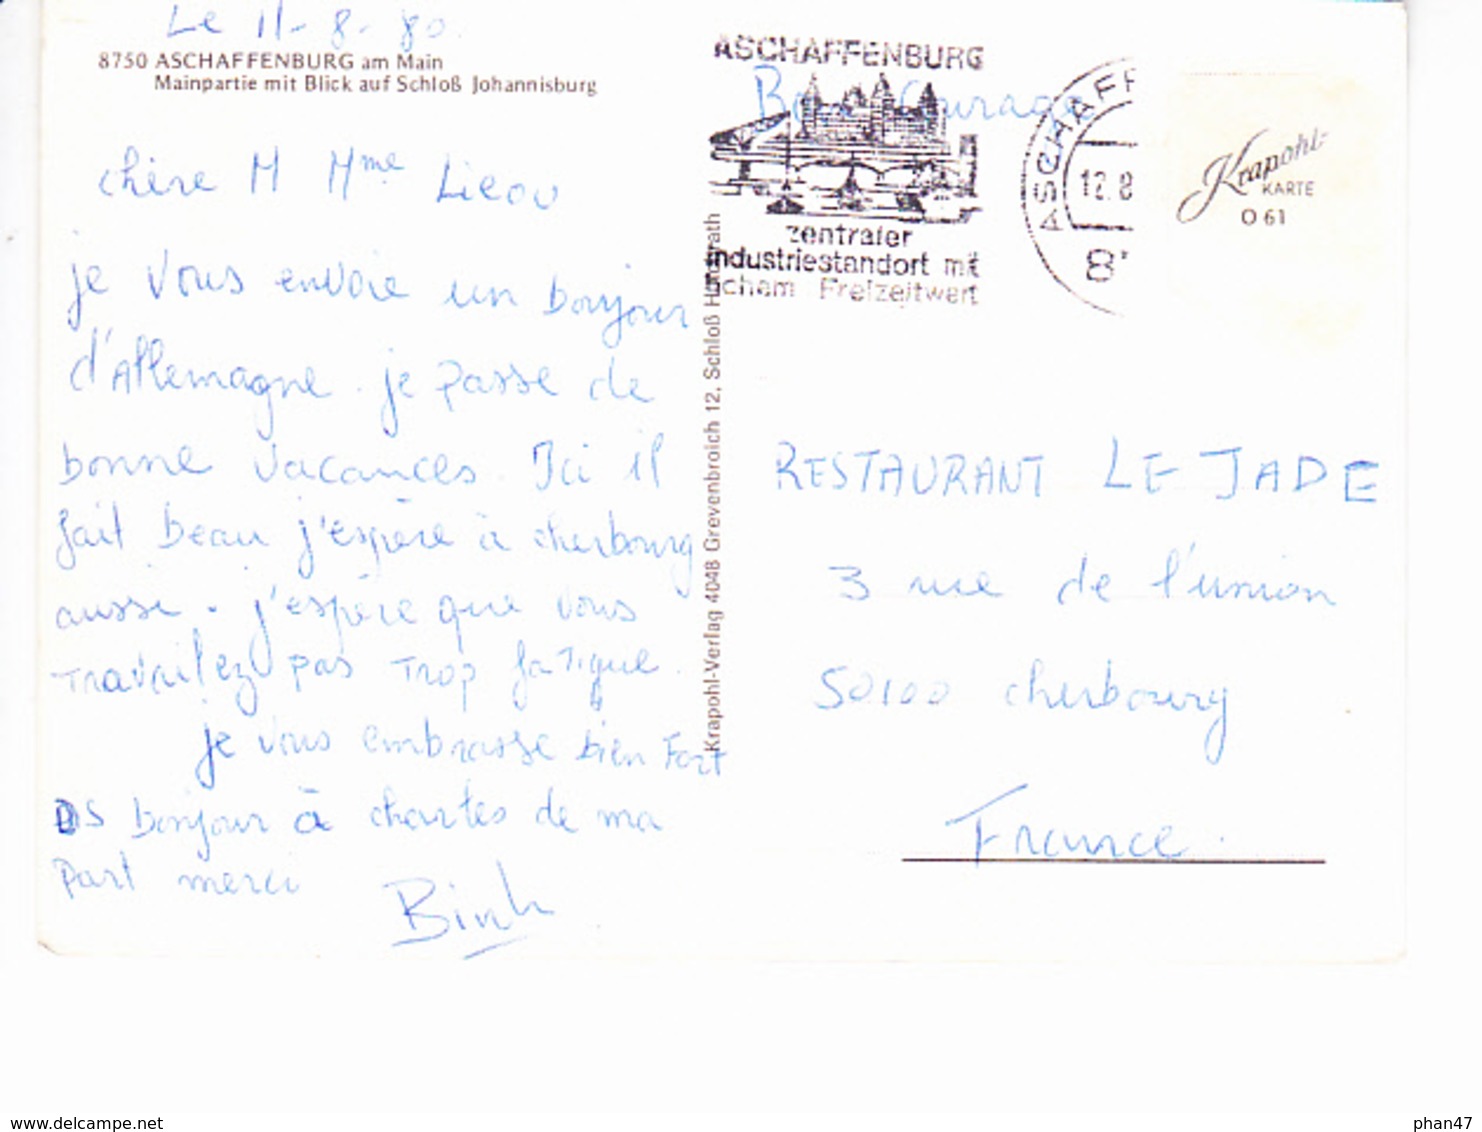 Le 11-8-80.
8750 ASCHAFFENBURG am Main
Mainpartie mit Blick auf Schloß Johannisburg
chère M Mme Lieou
je vous envoie un bonjour
d'Allemagne. je passe de
bonne vacances. Ici il
fait beau j'espère à cherbourg
aussi. j'espère que vous
travailez pas trop fatigue.
je vous embrasse bien fort
PS bonjour à charles de ma
part merci
Binh
Krapohl-Verlag 4048 Grevenbroich 12, Schloß
ASCHAFFENBURG
Bon Courage
zentraler
industriestandort mit
Freizeitwert
ASCHAFF
12.8
8
Krapohl-
KARTE
O 61
RESTAURANT LE JADE
3 rue de l'union
50100 cherbourg
France.
www.delcampe.net
phan47